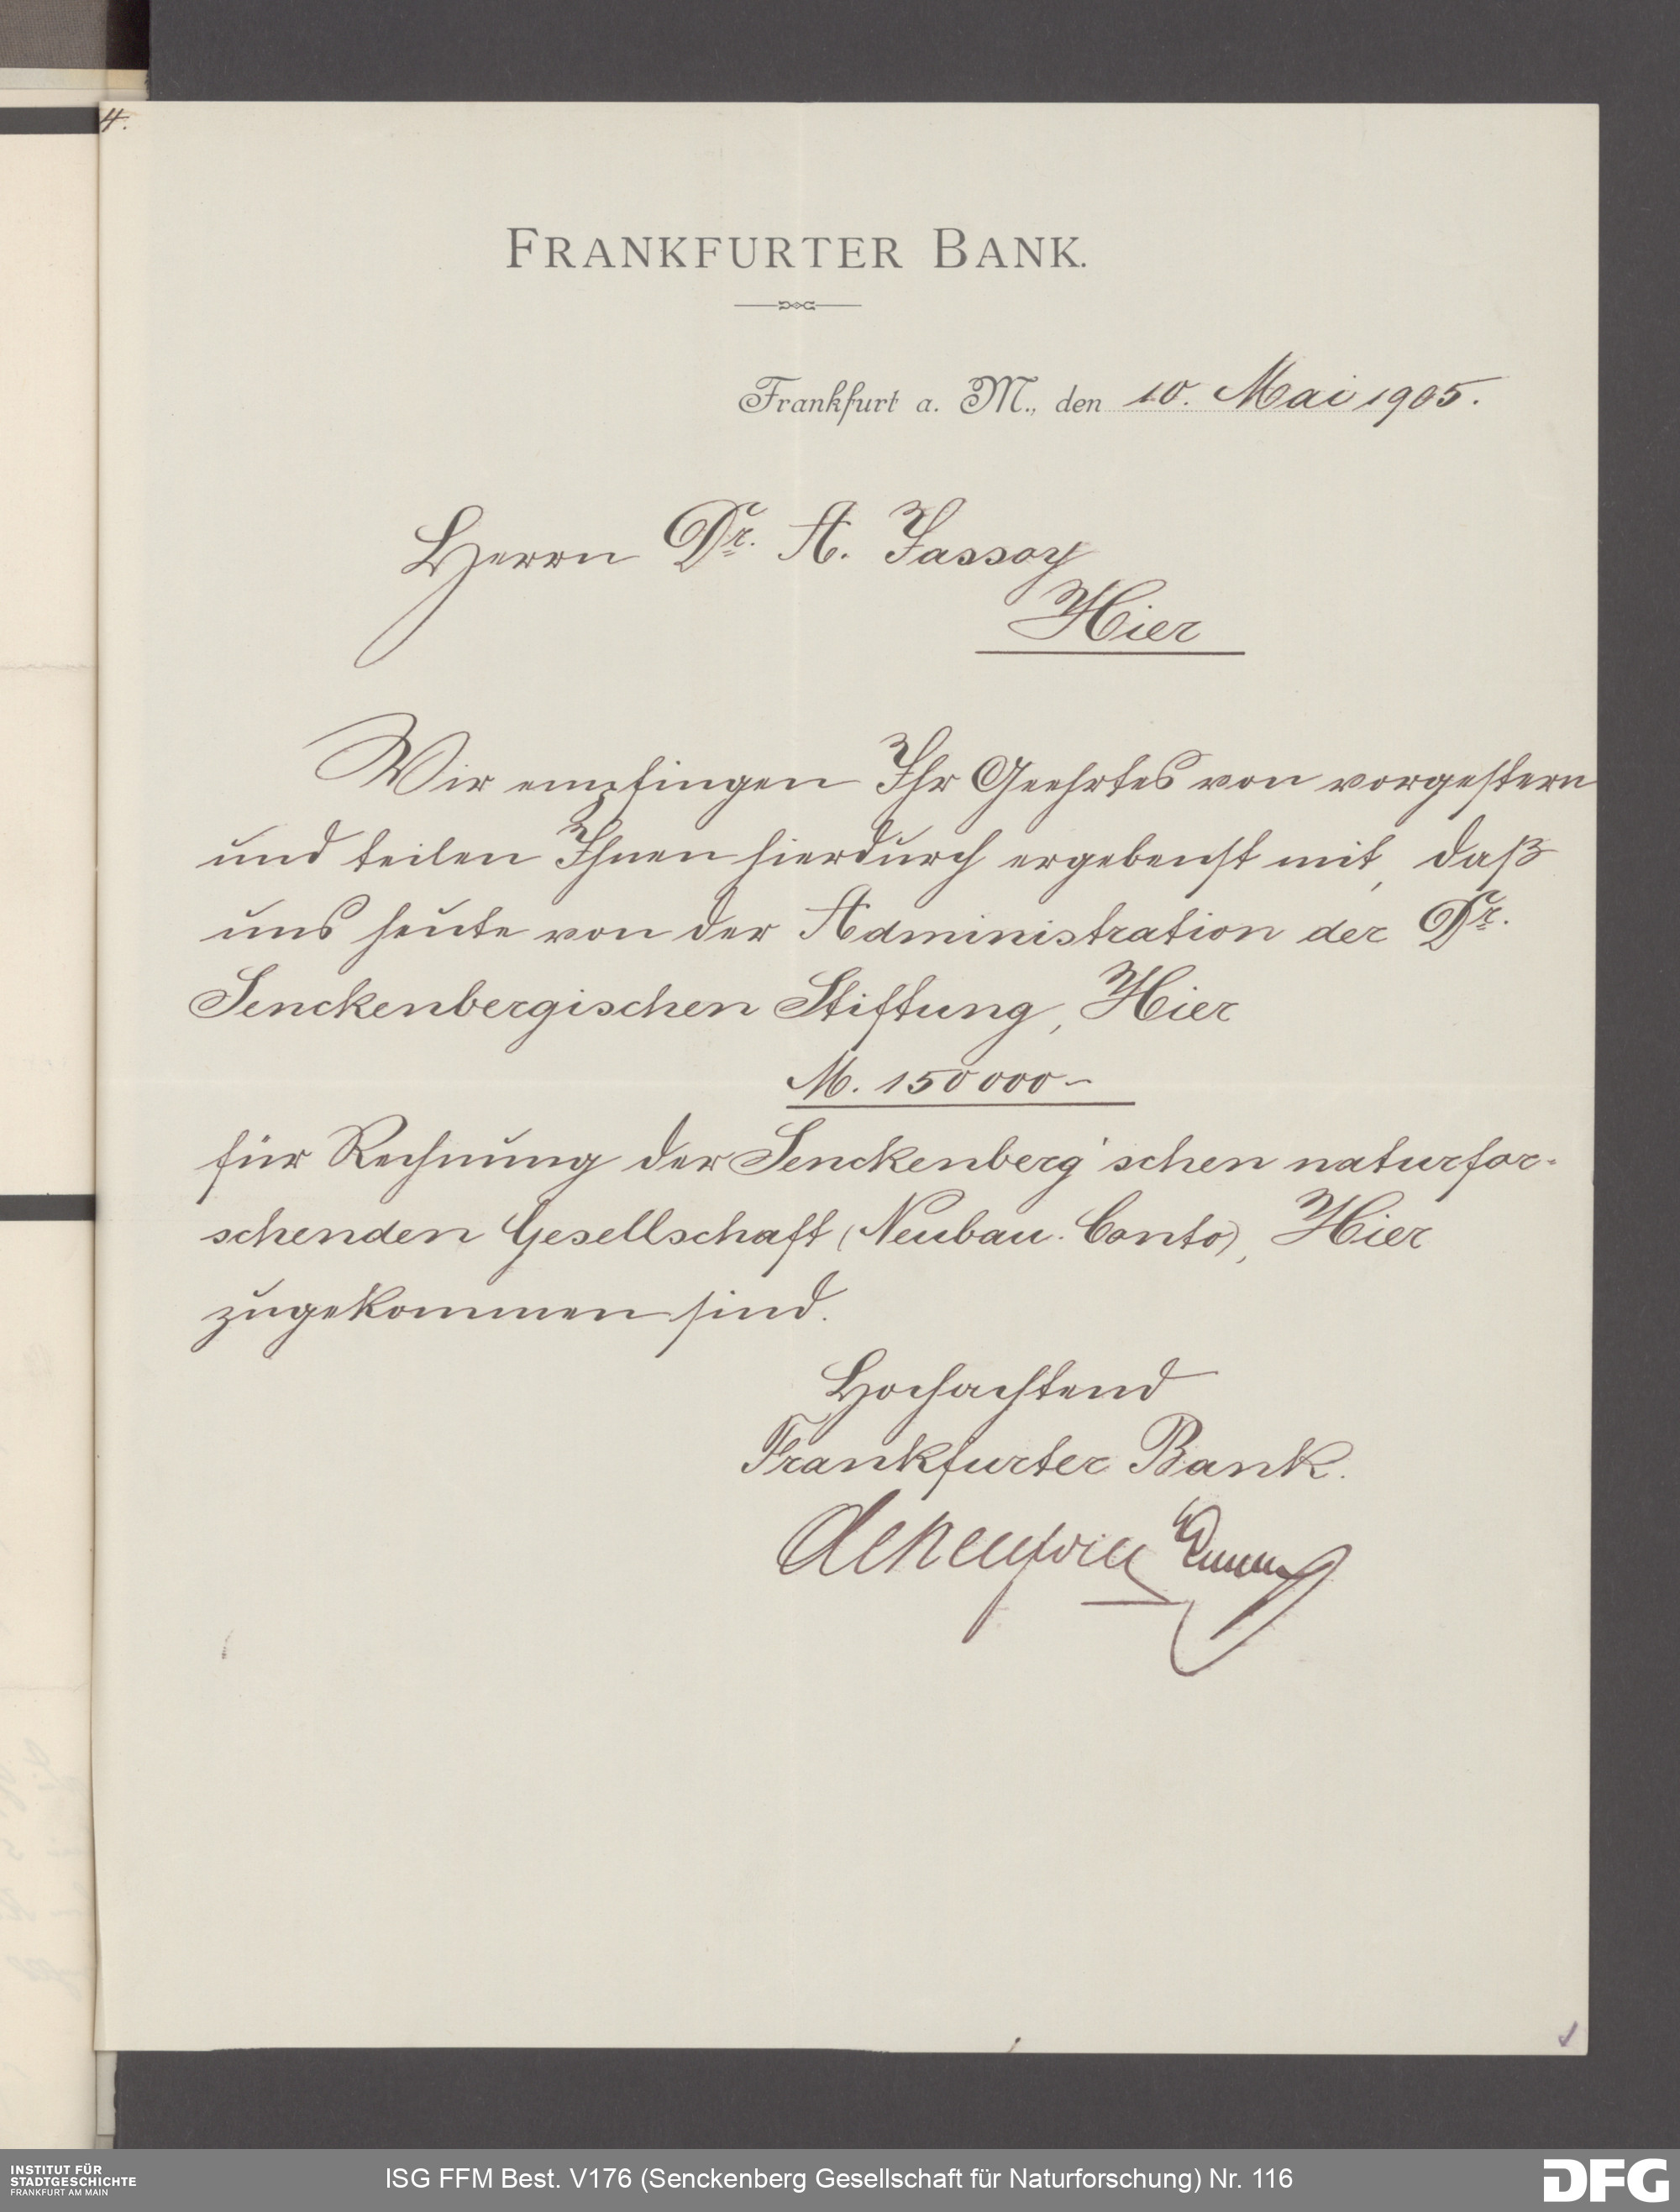 4.
FRANKFURTER BANK.
Frankfurt a. M., den 10. Mai 1905.
Herrn Dr. A. Jassoy
Hier
Wir empfingen Ihr Geehrtes von vorgestern
und teilen Ihnen hierdurch ergebenst mit, daß
uns heute von der Administration der Dr.
Senckenbergischen Stiftung, Hier
M. 150000-
für Rechnung der Senckenberg'schen naturfor-
schenden Gesellschaft (Neubau-Conto), Hier
zugekommen sind.
Hochachtend
Frankfurter Bank.
INSTITUT FÜR
STADTGESCHICHTE
FRANKFURT AM MAIN
ISG FFM Best. V176 (Senckenberg Gesellschaft für Naturforschung) Nr. 116
DFG